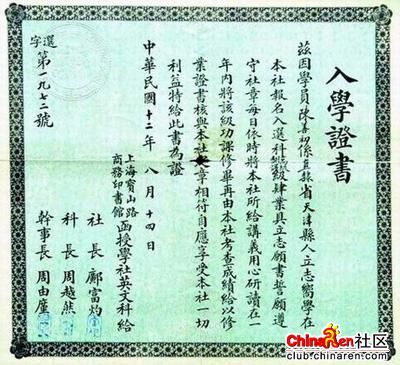 入學證書
茲因學員陳善初係直隸省天津縣人立志嚮學在
本社報名入選科級肄業具立志願書誓願遵
守社章每日依時將本社所給講義用心研讀在一
年內將該級功課修畢再由本社考查成績給以修
業證書核與本社章相符自應享受本社一切
利益特給此書為證
中華民國十二年八月十四日
上海寶山路
商務印書館
函授學社英文科給
社長 鄺富灼
科長 周越然
幹事長 周由廑
選字第一九七二號
ChinaRen社区
club.chinaren.com